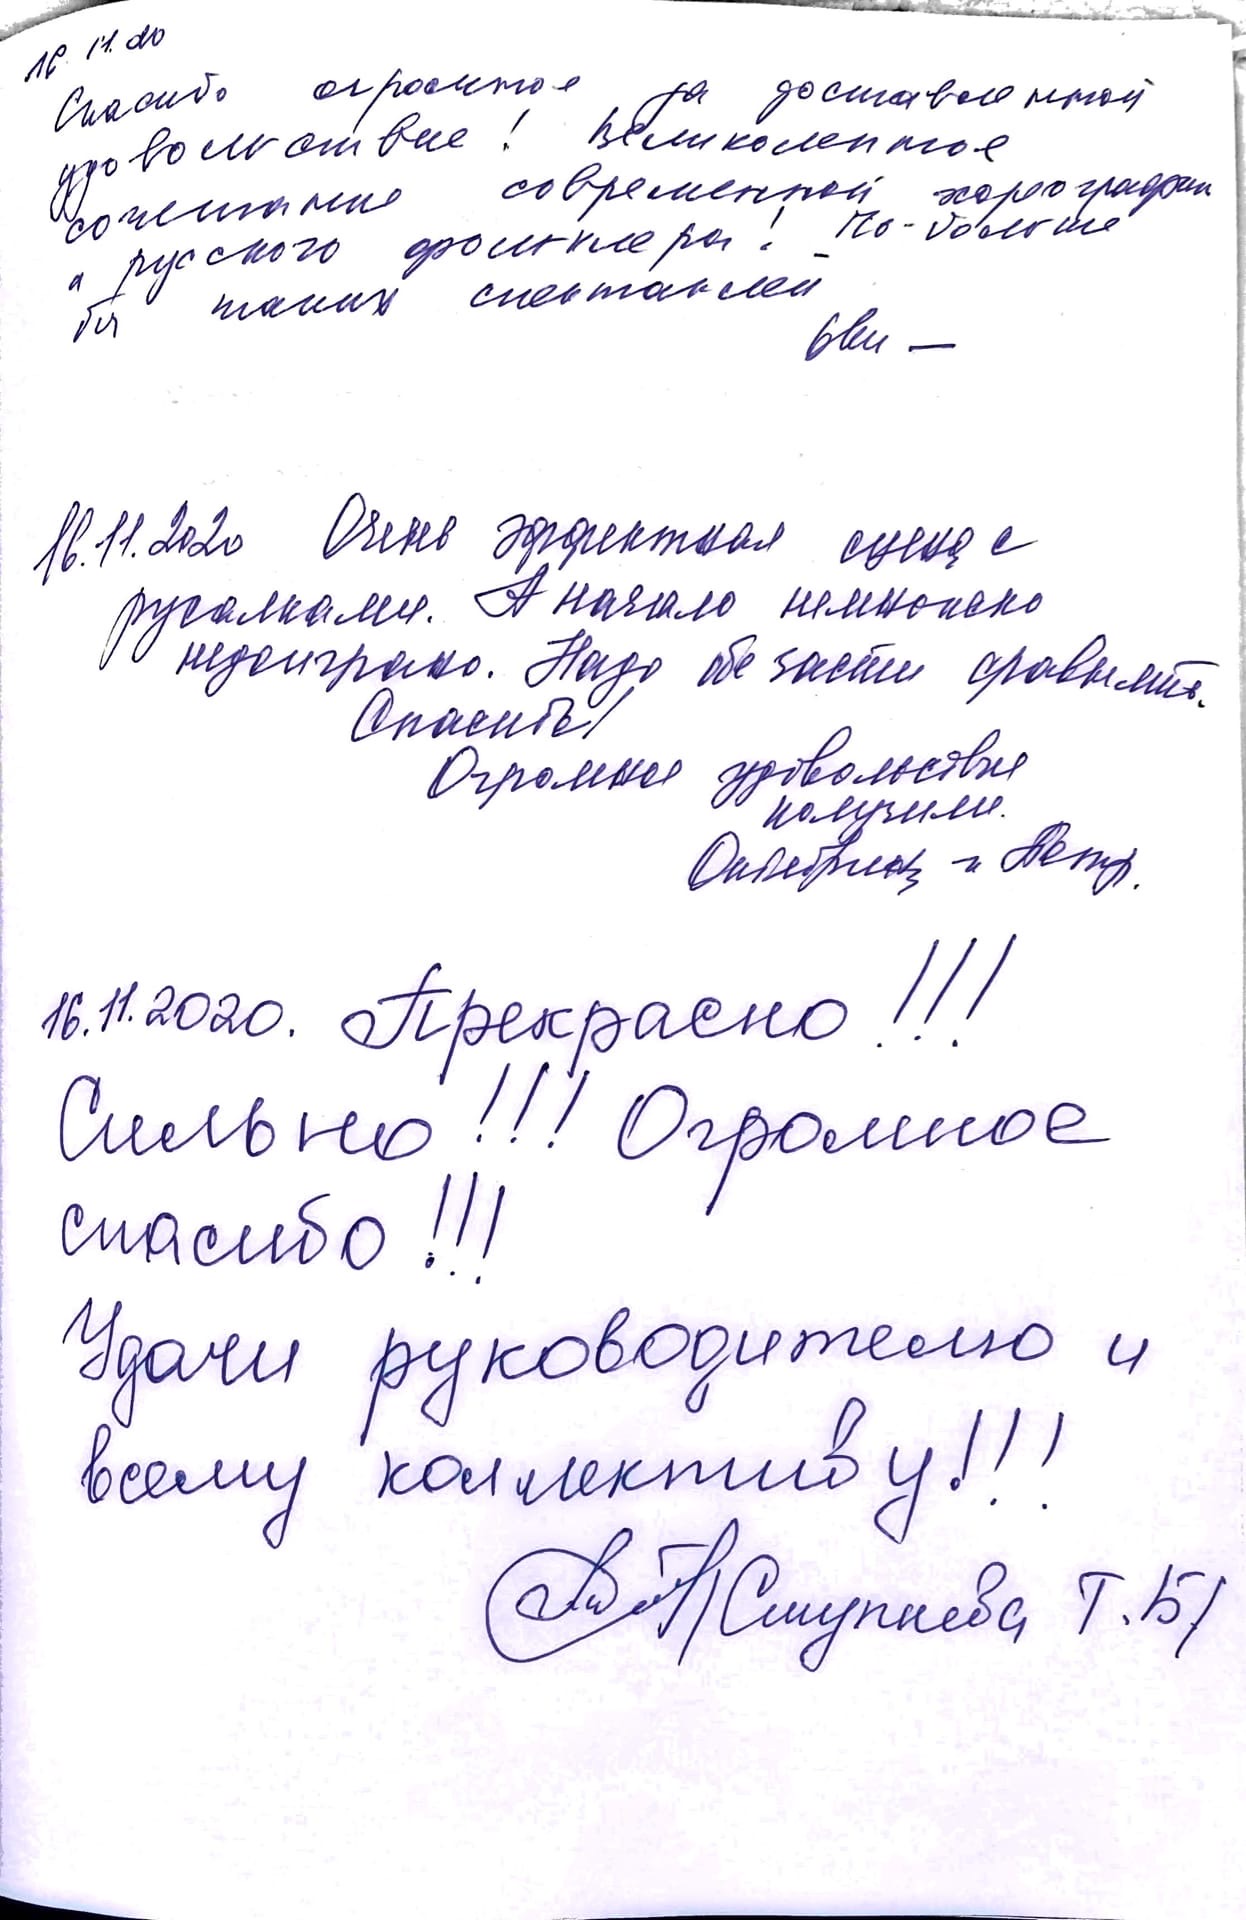 16.11.20
Спасибо огромное за доставленной
удовольствие! Великолепное
сочетание современной хореографии
и русского фольклера! По-больше
бы таких спектаклей
16.11.2020 Очень эффектная сцена с
русалками. А начало немножко
недоиграно. Надо обе части сравнять.
Спасибо!
Огромное удовольствие
получили.
Октябрина и Петр.
16.11.2020. Прекрасно!!!
Сильно!!! Огромное
спасибо!!!
Удачи руководителю и
всему коллективу!!!
/Ступнева Т.Б/